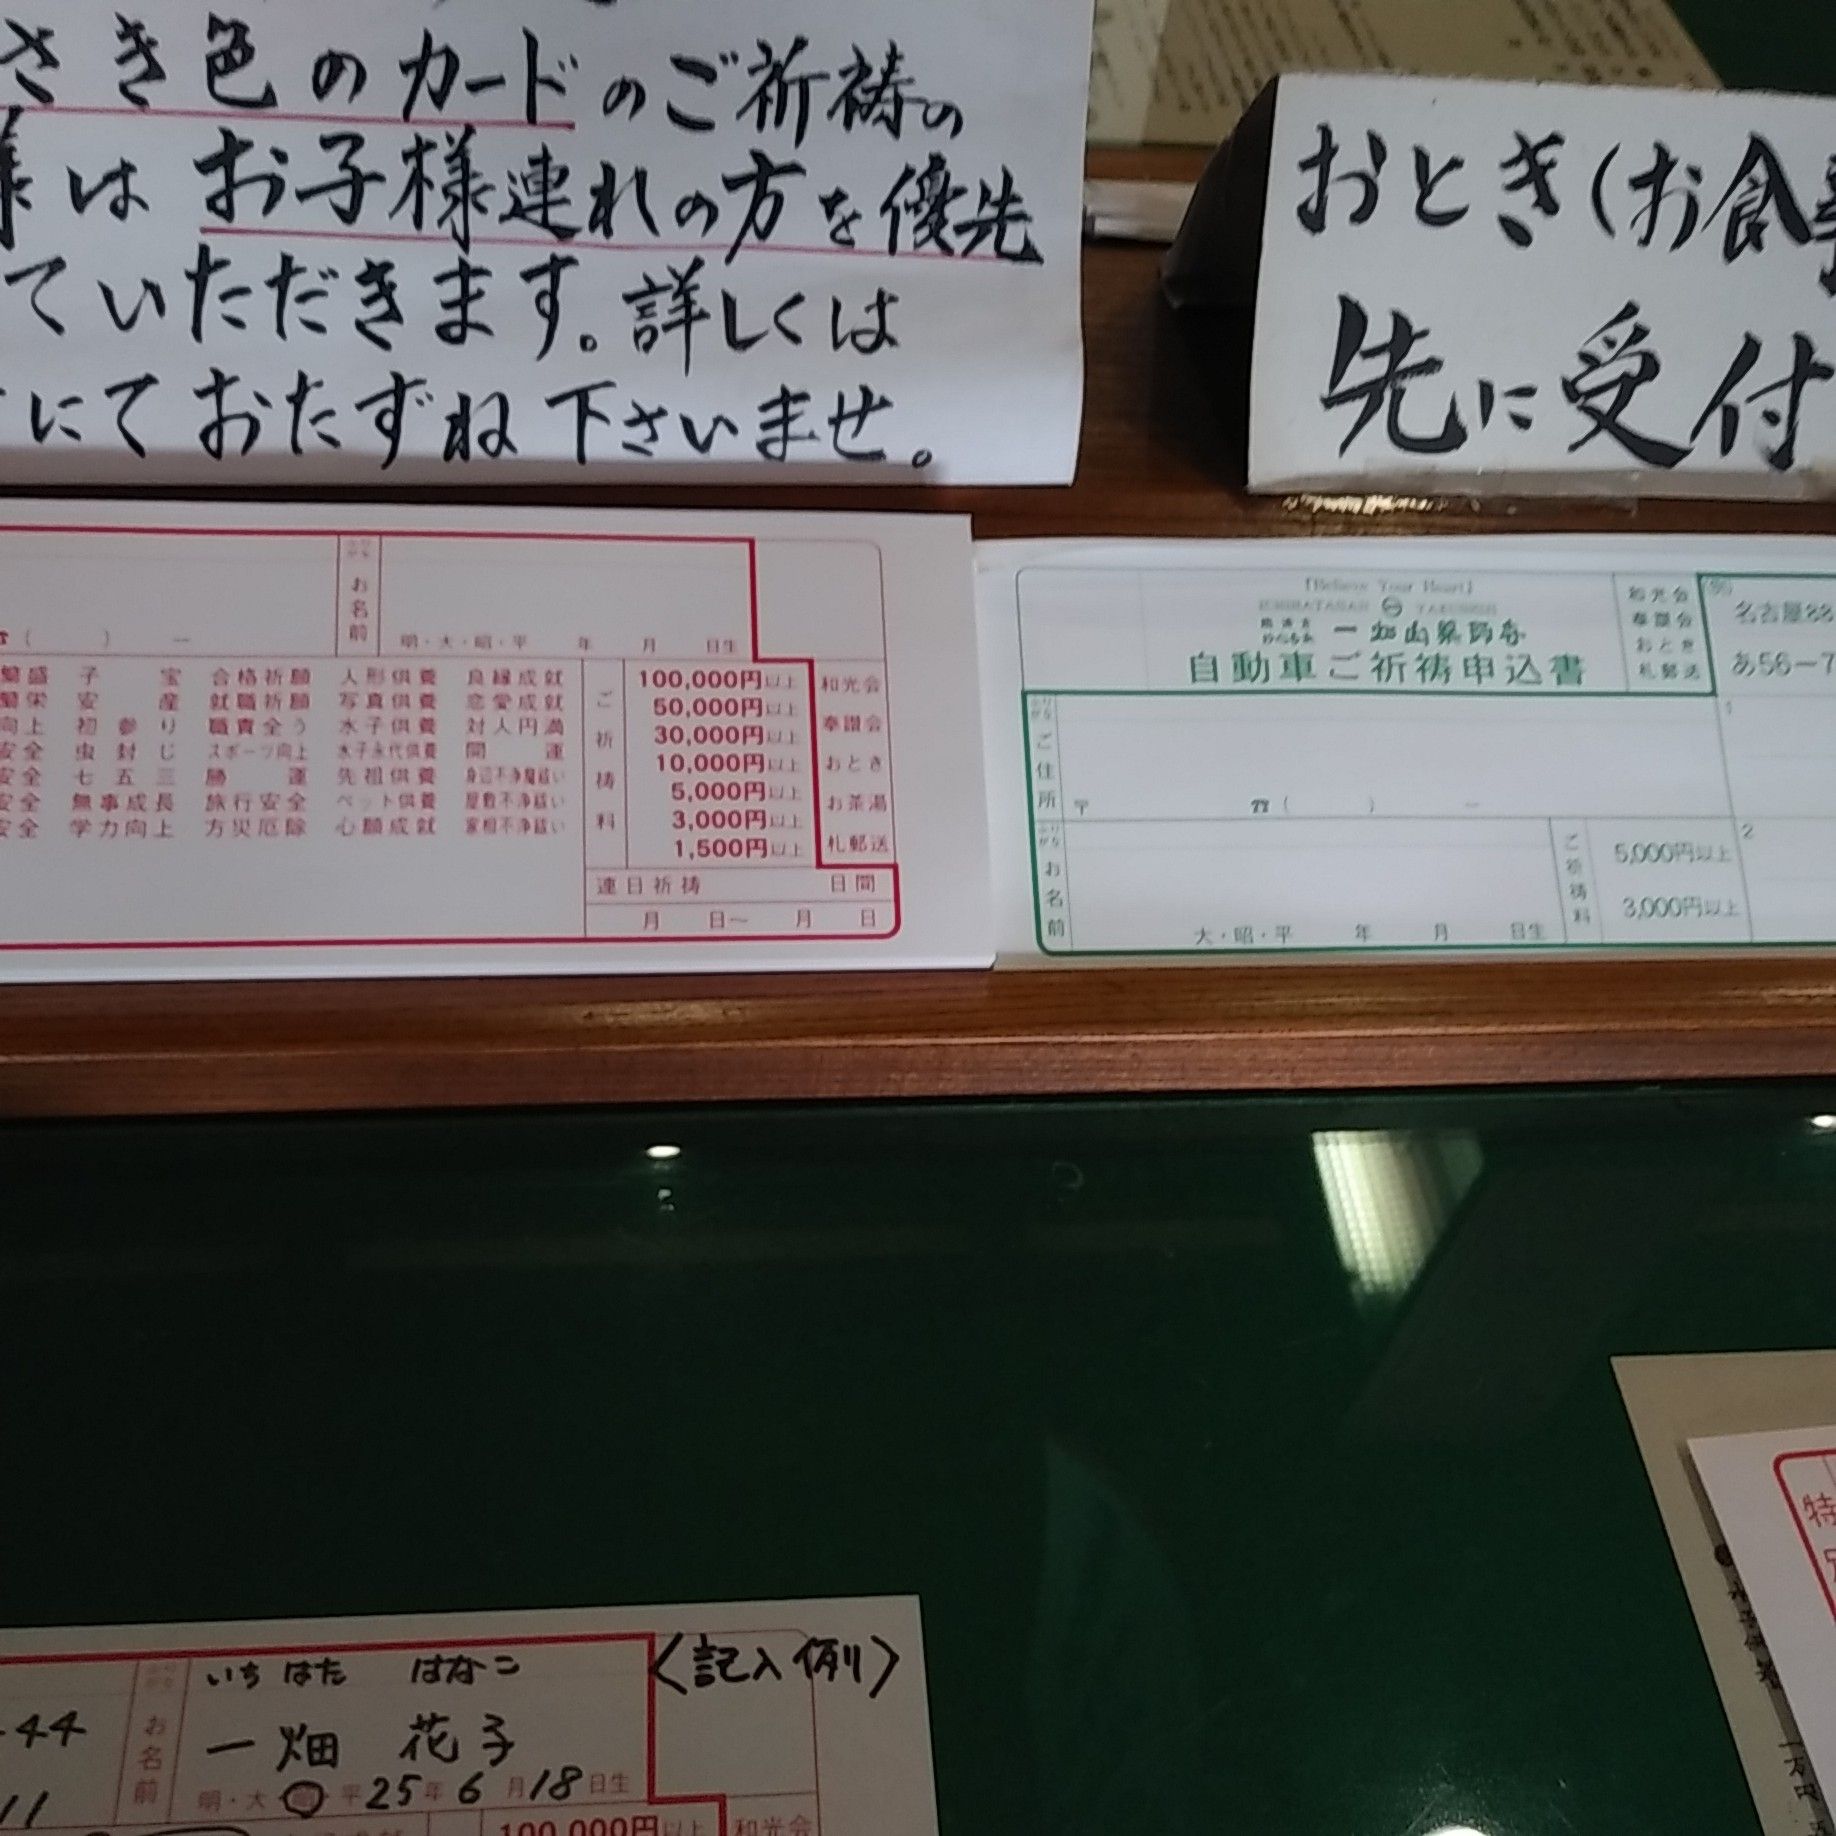 さき色のカードのご祈祷の
様はお子様連れの方を優先
ていただきます。詳しくは
にておたずね下さいませ。
おとき(お食事
先に受付
お名前
☎( ) ー
明・大・昭・平 年 月 日生
繁盛 子宝 合格祈願 人形供養 良縁成就
繁栄 安産 就職祈願 写真供養 恋愛成就
向上 初参り 職責全う 水子供養 対人円満
安全 虫封じ スポーツ向上 水子永代供養 開運
安全 七五三 勝運 先祖供養 身辺不浄魔祓い
安全 無事成長 旅行安全 ペット供養 屋敷不浄祓い
安全 学力向上 方災厄除 心願成就 家相不浄祓い
ご祈祷料
100,000円以上
50,000円以上
30,000円以上
10,000円以上
5,000円以上
3,000円以上
1,500円以上
和光会
奉讃会
おとき
お茶湯
札郵送
連日祈祷 日間
月 日〜 月 日
「Believe Your Heart」
ICHIBATASAN YAKUSHIJI
一畑山薬師寺
自動車ご祈祷申込書
和光会
奉讃会
おとき
札郵送
名古屋88
あ56-7
1
2
ふりがな
ご住所
〒 ☎( ) ー
ふりがな
お名前
大・昭・平 年 月 日生
ご祈祷料
5,000円以上
3,000円以上
〈記入例〉
いちはた はなこ
お名前
一畑 花子
44
11
明・大 平 25年 6月18日生
100,000円以上
和光会
特
一万円